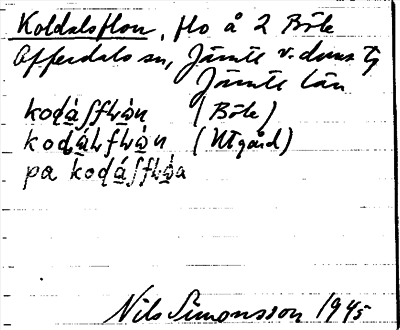 Koldalsflon, flo å 2 Böle
Offerdals sn, Jämtl v. doms tg
Jämtl län
kodá̱ſfɫwà̱n (Böle)
kodá̱ɫſfɫwà̱n (Utgård)
pa kodá̱ſfɫwà̱a
Nils Simonsson 1945